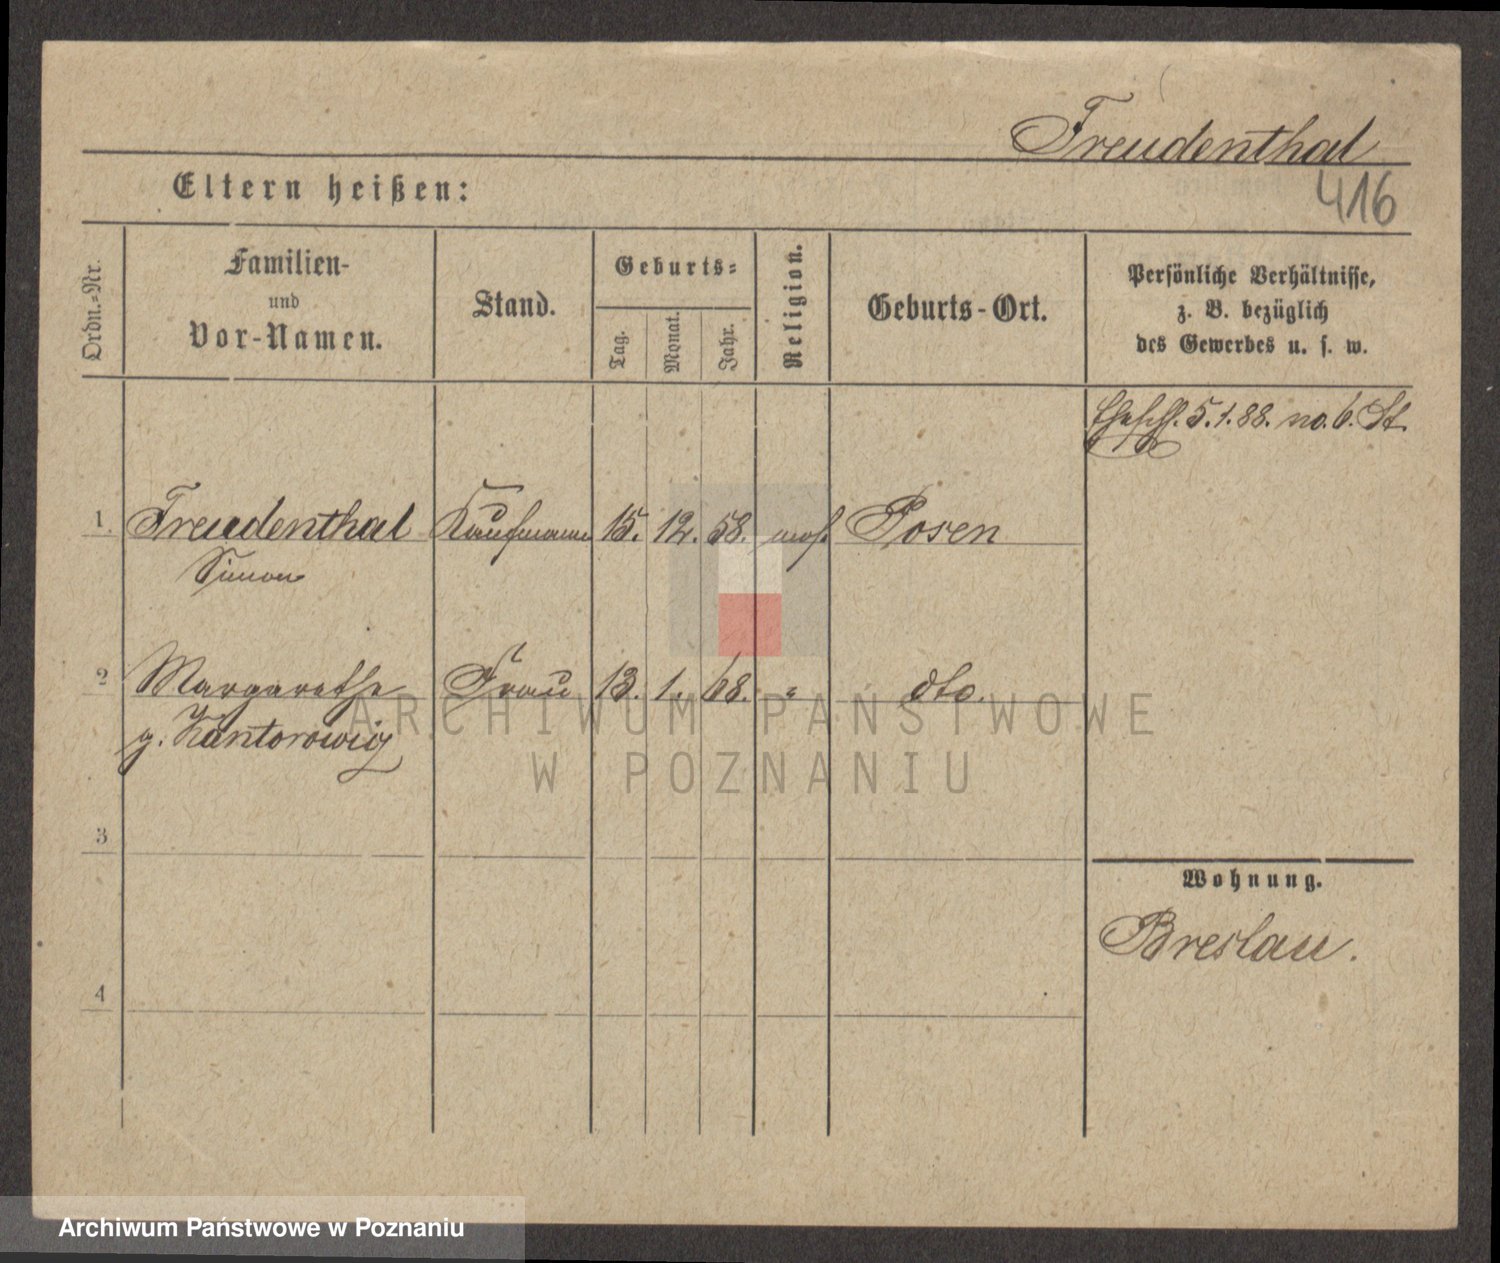 Freudenthal
416
Eltern heißen:
Ordn.=Nr.
Familien-
und
Vor-Namen.
Stand.
Geburts=
Tag.
Monat.
Jahr.
Religion.
Geburts-Ort.
Persönliche Verhältnisse,
z. B. bezüglich
des Gewerbes u. s. w.
Ehesch. 5.1.88. no. 6. St
1. Freudenthal Kaufmann 15. 12. 58. mos. Posen
Simon
2 Margarethe Frau 13. 1. 68. " dto.
g. Kantorowicz
3
4
Wohnung.
Breslau.
ARCHIWUM PAŃSTWOWE
W POZNANIU
Archiwum Państwowe w Poznaniu